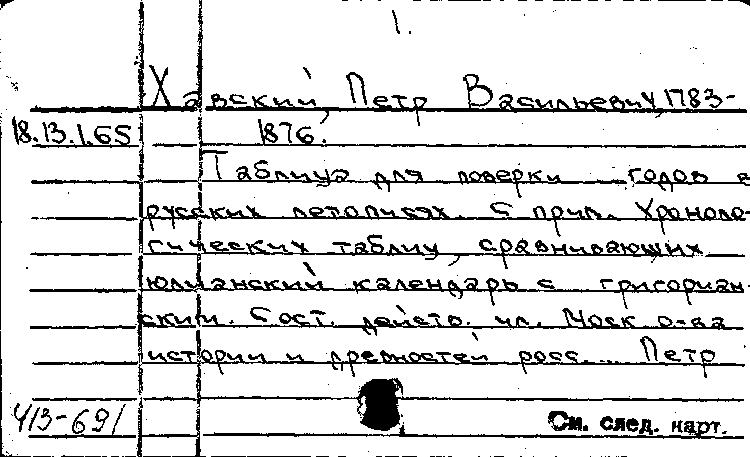 1.
Хавский, Петр Васильевич, 1783-
18.13.1.65 1876.
Таблица для поверки годов в
русских летописях. С прил. Хроноло-
гических таблиц, сравнивающих
юлианский календарь с григориан-
ским. Сост. действ. чл. Моск о-ва
истории и древностей росс... Петр
413-691
См. след. карт.